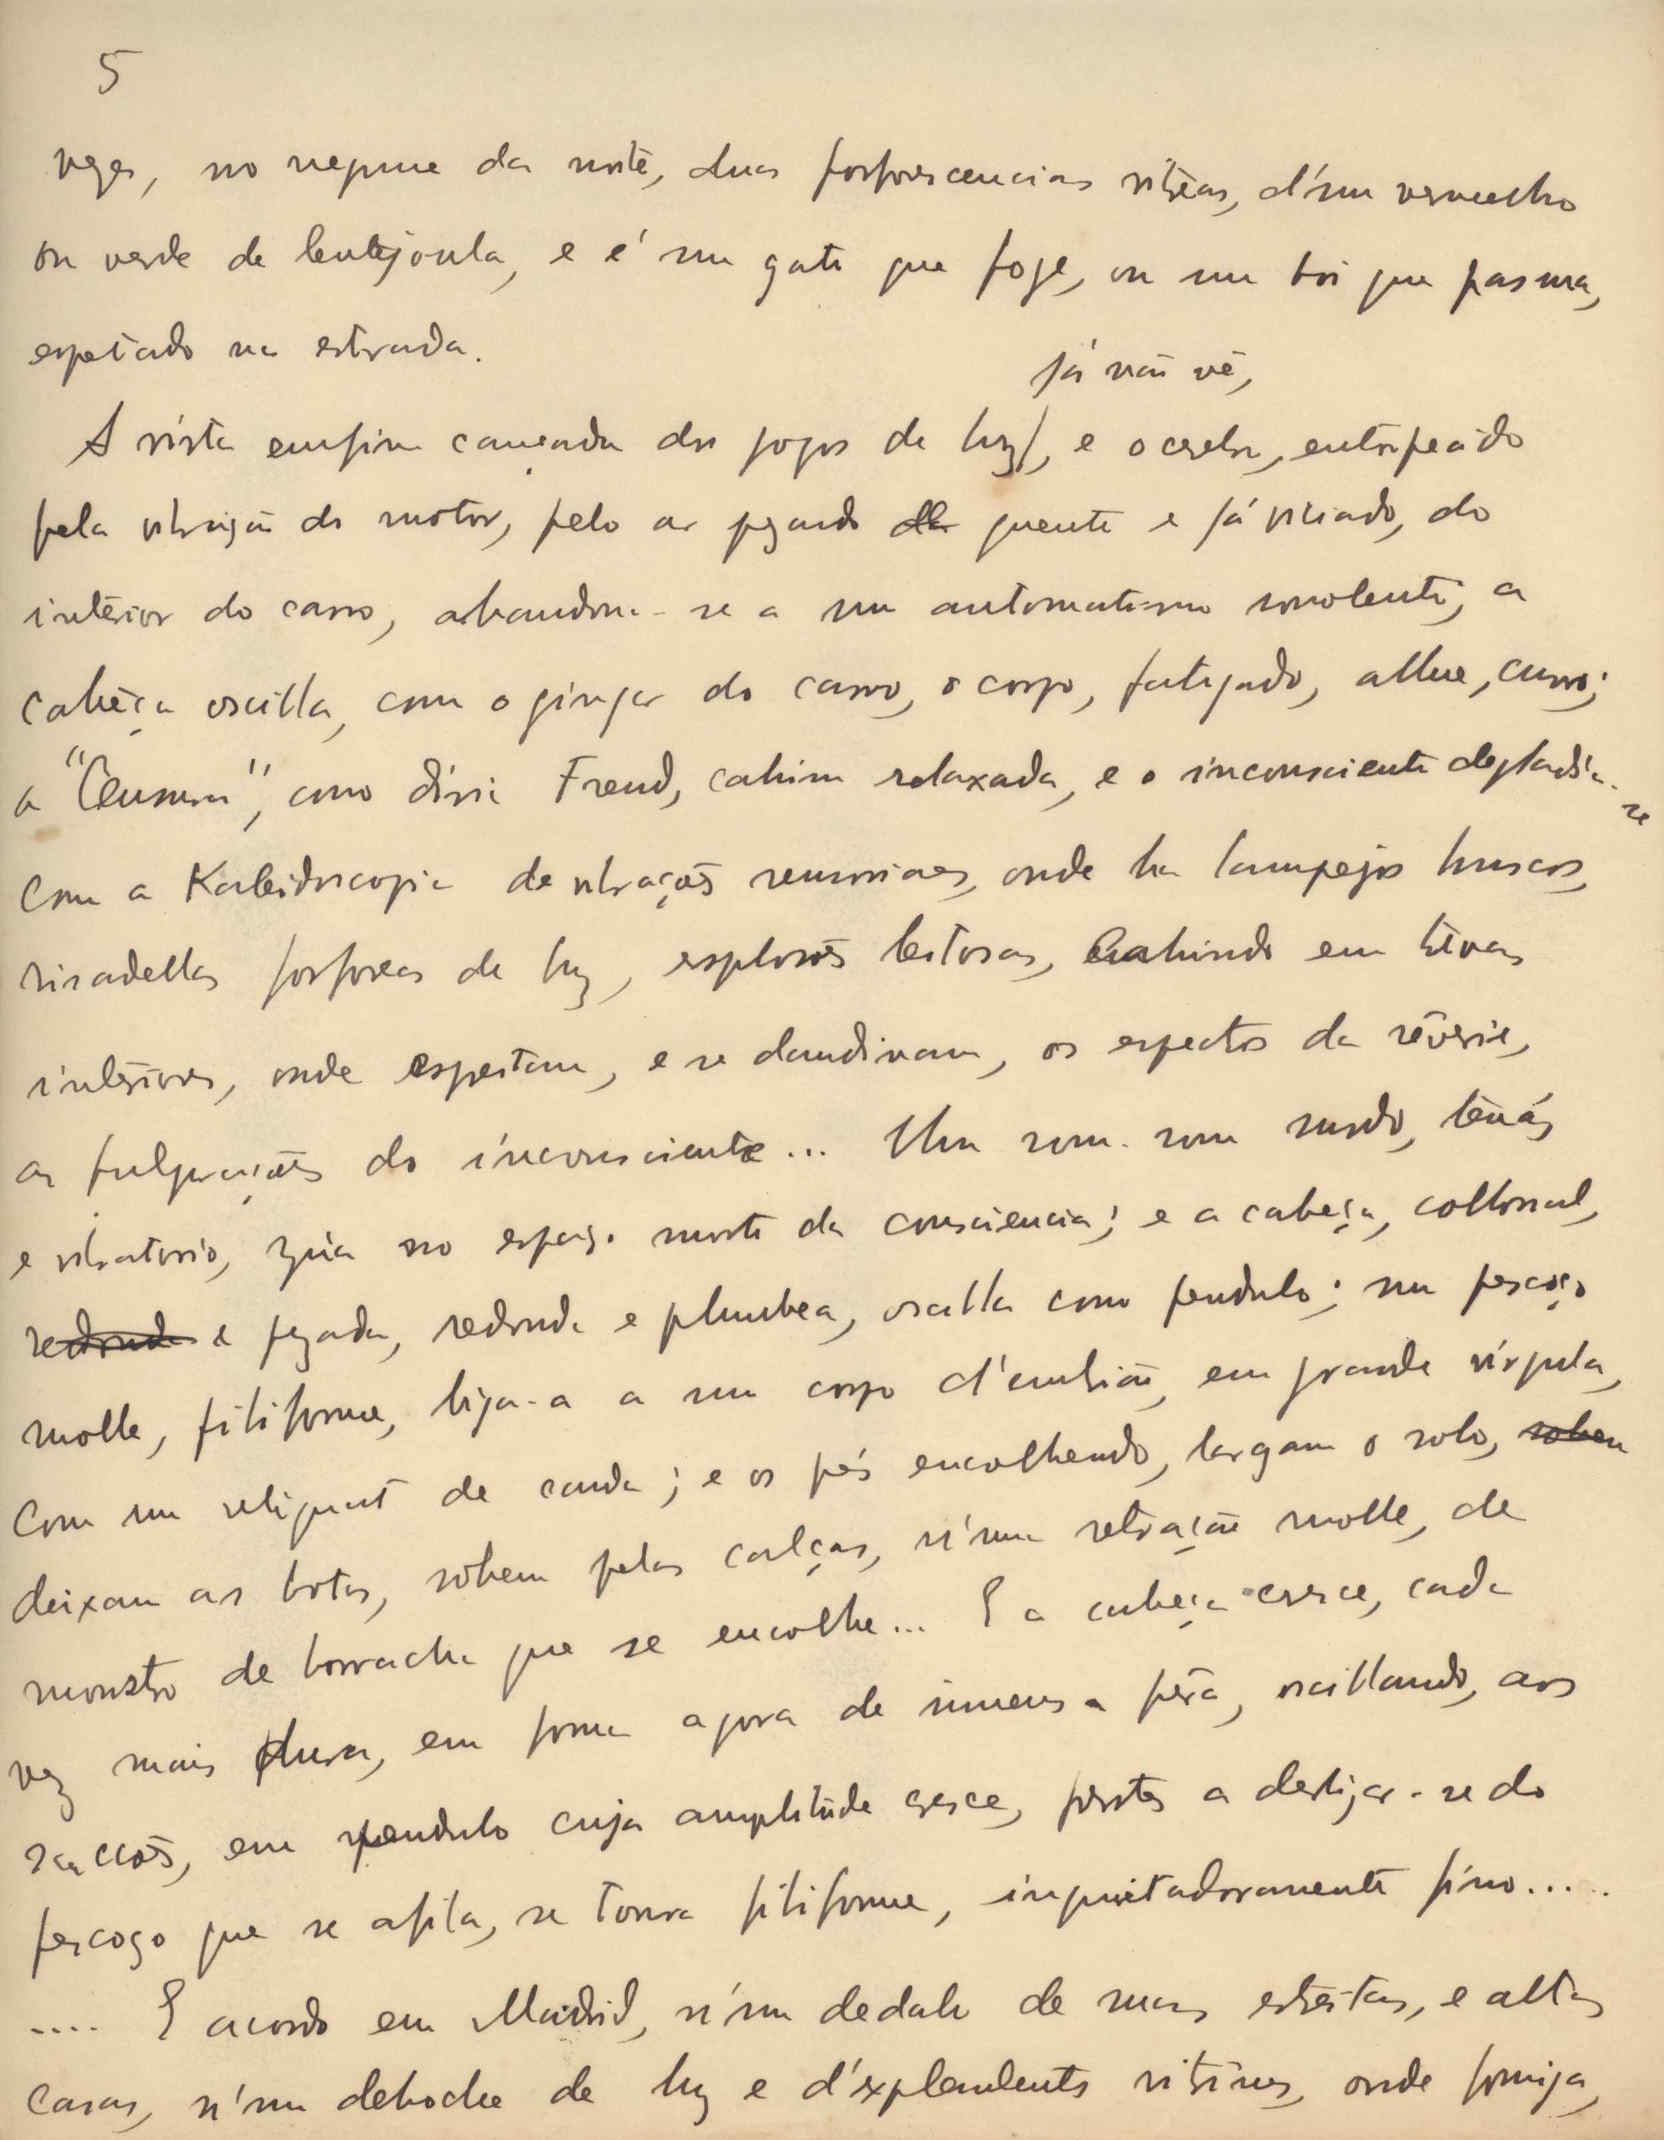 5
vezes, no negrume da noite, duas fosforescencias vitreas, d'um vermelho
ou verde de lentejoula, e é um gato que foge, ou um boi que pasma,
espetado na estrada.
já não vê,
A vista emfim cançada dos jogos de luz, e o cerebro, entorpecido
pela vibração do motor, pelo ar pezado quente e já viciado, do
interior do carro, abandona-se a um automatismo sonolento, a
cabeça oscilla, com o gingar do carro, o corpo, fatigado, allue, curvo;
a "Censura", como diria Freud, cahira relaxada, e o inconsciente
-se
com a Kaleidoscopia de vibrações, onde ha lampejos bruscos,
risadellas fosforeas de luz, explosões leitosas, cahindo em trevas
interiores, onde espreitam, e se dandinam, os espectos da rêverie,
as fulgurações do inconsciente... Um rom-rom surdo, tenáz
e vibratorio, zúa no espaço morto da consciencia; e a cabeça, collossal,
redonda e pezada, redonda e plumbea, oscilla como pendulo; um pescoço
molle, filiforme, liga-a a um corpo d'embrião, em grande virgula,
com um reliquat de cauda; e os pés encolhendo, largam o solo, sobem
deixam as botas, sóbem pelas calças, n'uma retração molle, de
monstro de borracha que se encolhe... E a cabeça cresce, cada
vez mais dura, em forma agora de immensa pêra, oscillando, aos
saccões, em pendulo cuja amplitude cresce, prestes a desligar-se do
pescoço que se afila, se torna filiforme, inquietadoramente fino.....
.... E acordo em Madrid, n'um dedalo de ruas estreitas, e altas
casas, n'um deboche de luz e d'explendentes vitrines, onde formiga,